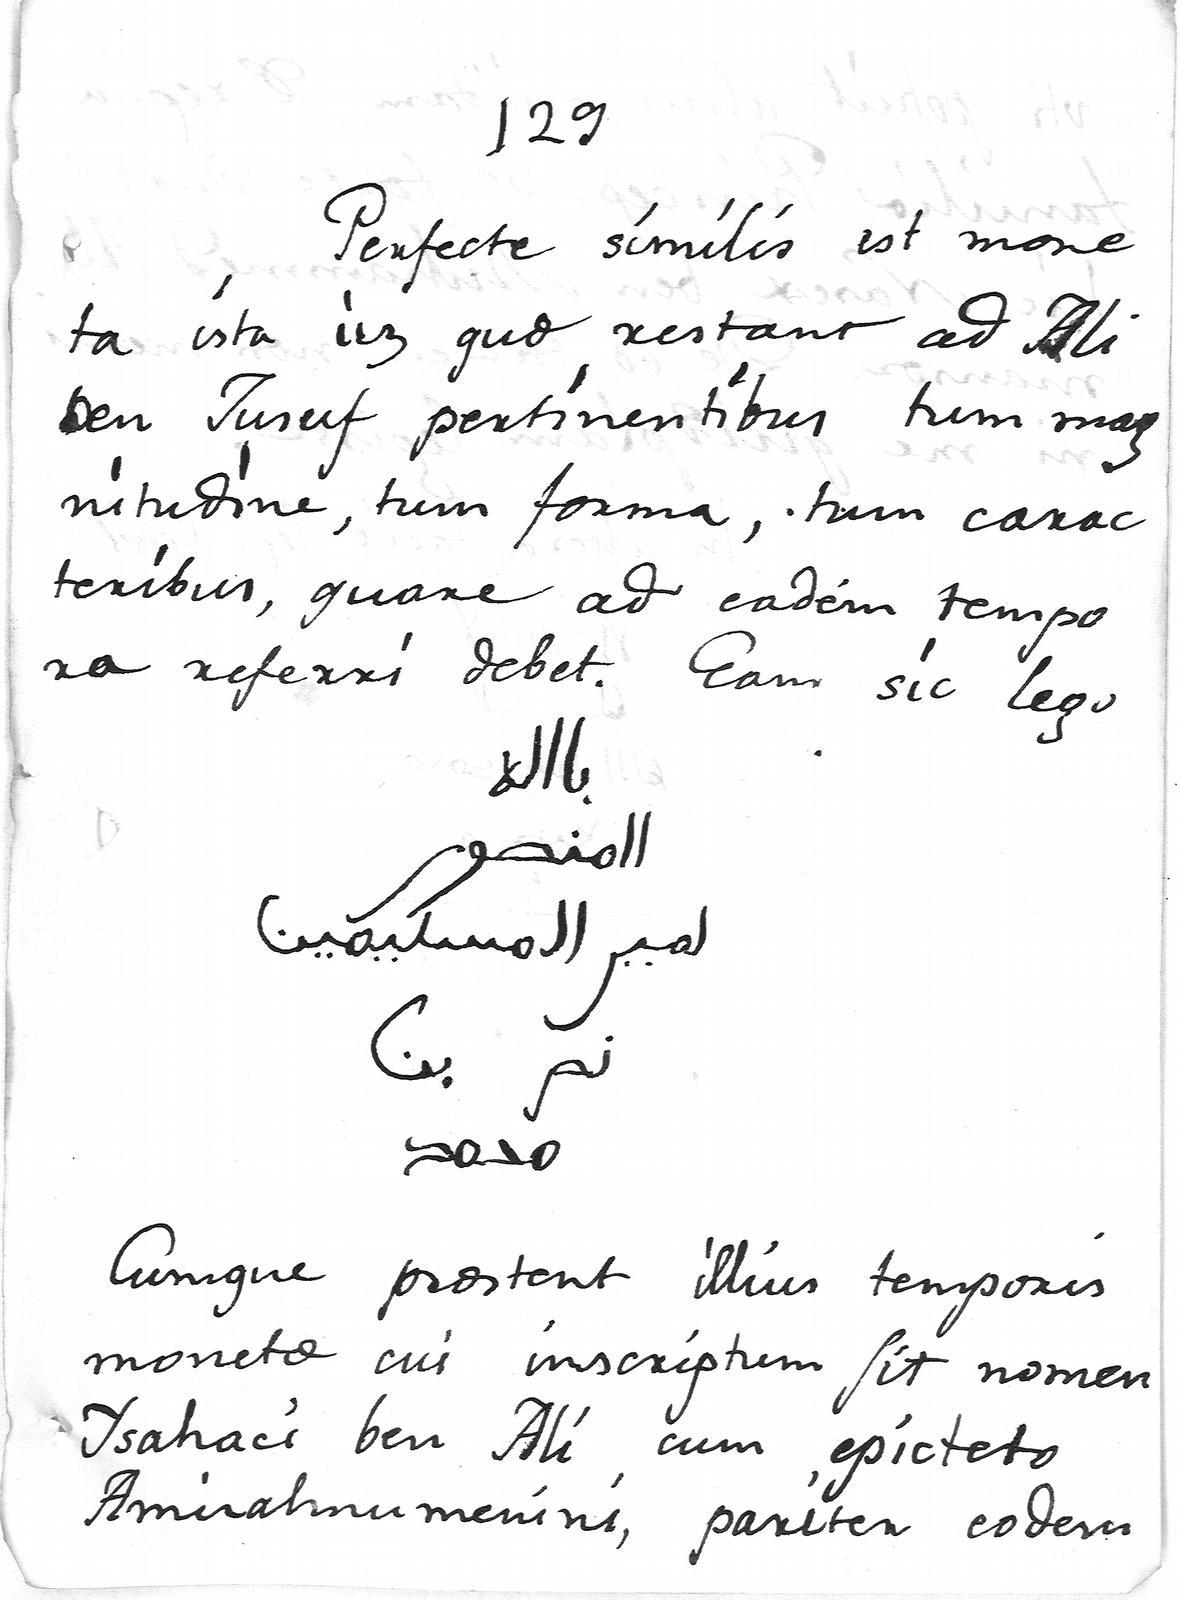 129
Perfecte similis est mone
ta ista iis quæ restant ad Ali
ben Jusuf pertinentibus tum mag
nitudine, tum forma, tum carac
teribus, quare ad eadem tempo
ra referri debet. Eam sic lego
باالله
المنصور
امير المسليمين
نصر بن
محمد
Cumque præstent illius temporis
monetæ cui inscriptum sit nomen
Isahaci ben Ali cum epicteto
Amirahnumenini, pariter eodem